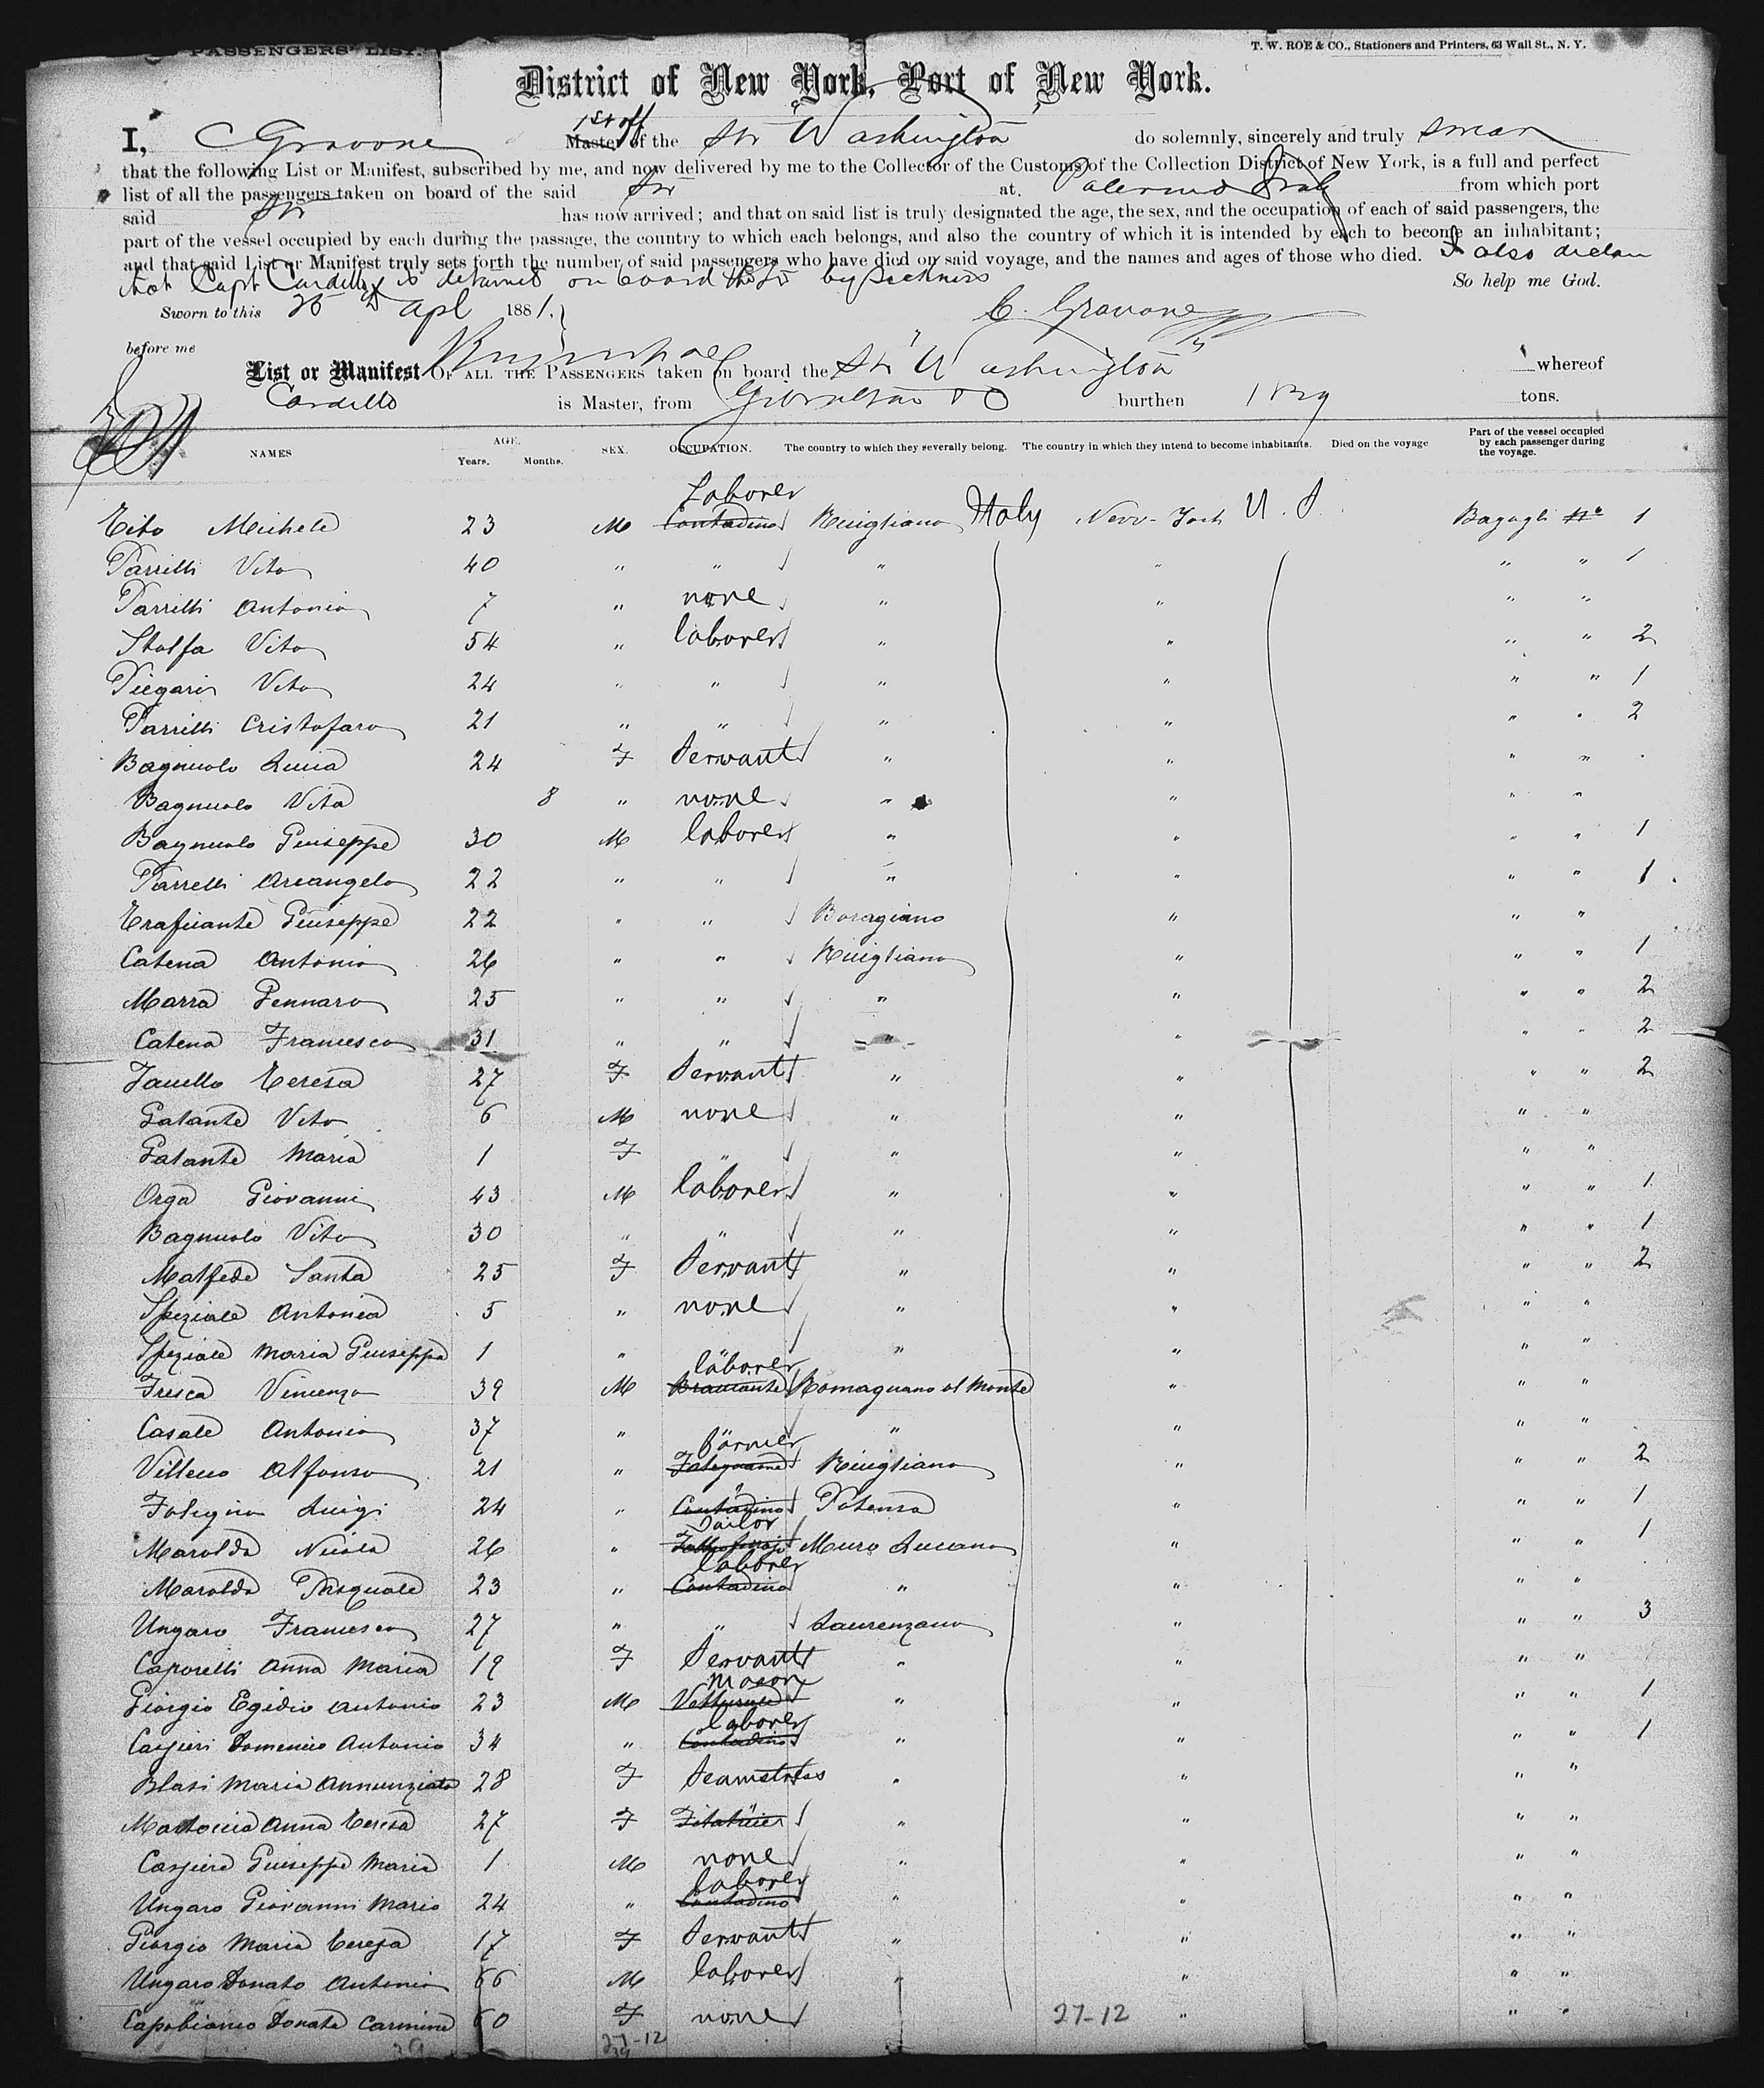 PASSENGERS' LIST.
T. W. ROE & CO., Stationers and Printers, 63 Wall St., N. Y.
District of New York, Port of New York.
I, C Gravone 1st off Master of the Str "Washington" do solemnly, sincerely and truly swear
that the following List or Manifest, subscribed by me, and now delivered by me to the Collector of the Customs of the Collection District of New York, is a full and perfect
list of all the passengers taken on board of the said Str at Palermo Italy from which port
said Str has now arrived; and that on said list is truly designated the age, the sex, and the occupation of each of said passengers, the
part of the vessel occupied by each during the passage, the country to which each belongs, and also the country of which it is intended by each to become an inhabitant;
and that said List or Manifest truly sets forth the number of said passengers who have died on said voyage, and the names and ages of those who died. I also declare
that Capt Cardillo is detained on board the Str by sickness So help me God.
Sworn to this 25th Apl 1881. C. Gravone
before me
List or Manifest OF ALL THE PASSENGERS taken on board the Str "Washington" whereof
Cardillo is Master, from Gibraltar burthen tons.
NAMES AGE. Years. Months. SEX. OCCUPATION. The country to which they severally belong. The country in which they intend to become inhabitants. Died on the voyage Part of the vessel occupied by each passenger during the voyage.
Tito Michele 23 M Laborer Contadino Ricigliano Italy New-York U. S. Bagagli No 1
Parrilli Vito 40 " " " " " " 1
Parrilli Antonio 7 " none " " " "
Stolfa Vito 54 " laborer " " " " 2
Piegari Vito 24 " " " " " " 1
Parrilli Cristofaro 21 " " " " " " 2
Bagnuolo Lucia 24 F Servant " " " "
Bagnuolo Vita 8 " none " " " "
Bagnuolo Giuseppe 30 M laborer " " " " 1
Parrelli Arcangelo 22 " " " " " " 1
Traficante Giuseppe 22 " " Boragiano " " "
Catena Antonio 26 " " Ricigliano " " " 1
Marra Gennaro 25 " " " " " " 2
Catena Francesco 31 " " " " " " 2
Teresa 27 F Servant " " " " 2
Galante Vito 6 M none " " " "
Galante Maria 1 F " " " " "
Orga Giovanni 43 M laborer " " " " 1
Bagnuolo Vito 30 " " " " " " 1
Malfede Santa 25 F Servant " " " " 2
Speziale Antonia 5 " none " " " "
Speziale Maria Giuseppa 1 " " " " " "
Fresca Vincenzo 39 M laborer Bracciante Romagnano al Monte " " "
Casale Antonio 37 " " " " " "
Villecco Alfonso 21 " farmer Falegname Ricigliano " " " 2
Luigi 24 " " Contadino Potenza " " " 1
Marolda Nicola 26 " Tailor Muro Lucano " " " 1
Marolda Pasquale 23 " laborer Contadino " " " "
Ungaro Francesco 27 " " Laurenzano " " " 3
Caporelli Anna Maria 19 F Servant " " " "
Giorgio Egidio Antonio 23 M mason " " " " 1
Casieri Domenico Antonio 34 " laborer Contadino " " " " 1
Blasi Maria Annunziata 28 F Seamstress " " " "
Anna Teresa 27 F " Filatrice " " " "
Giuseppe Maria 1 M none " " " "
Ungaro Giovanni Mario 24 " laborer Contadino " " " "
Giorgio Maria Teresa 17 F Servant " " " "
Ungaro Donato Antonio 66 M laborer " " " "
Capobianco Donata Carmina 60 F none " " " "
27-12
39 27-12
39